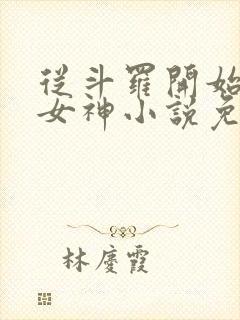 從斗羅開始
女神小說免
林慶霞